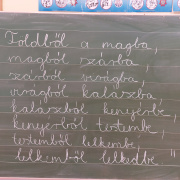 Földből a magba,
magból szárba,
szárból virágba,
virágból kalászba
kalászból kenyérbe,
kenyérből testembe,
testemből lelkembe,
lelkemből lelkedbe."